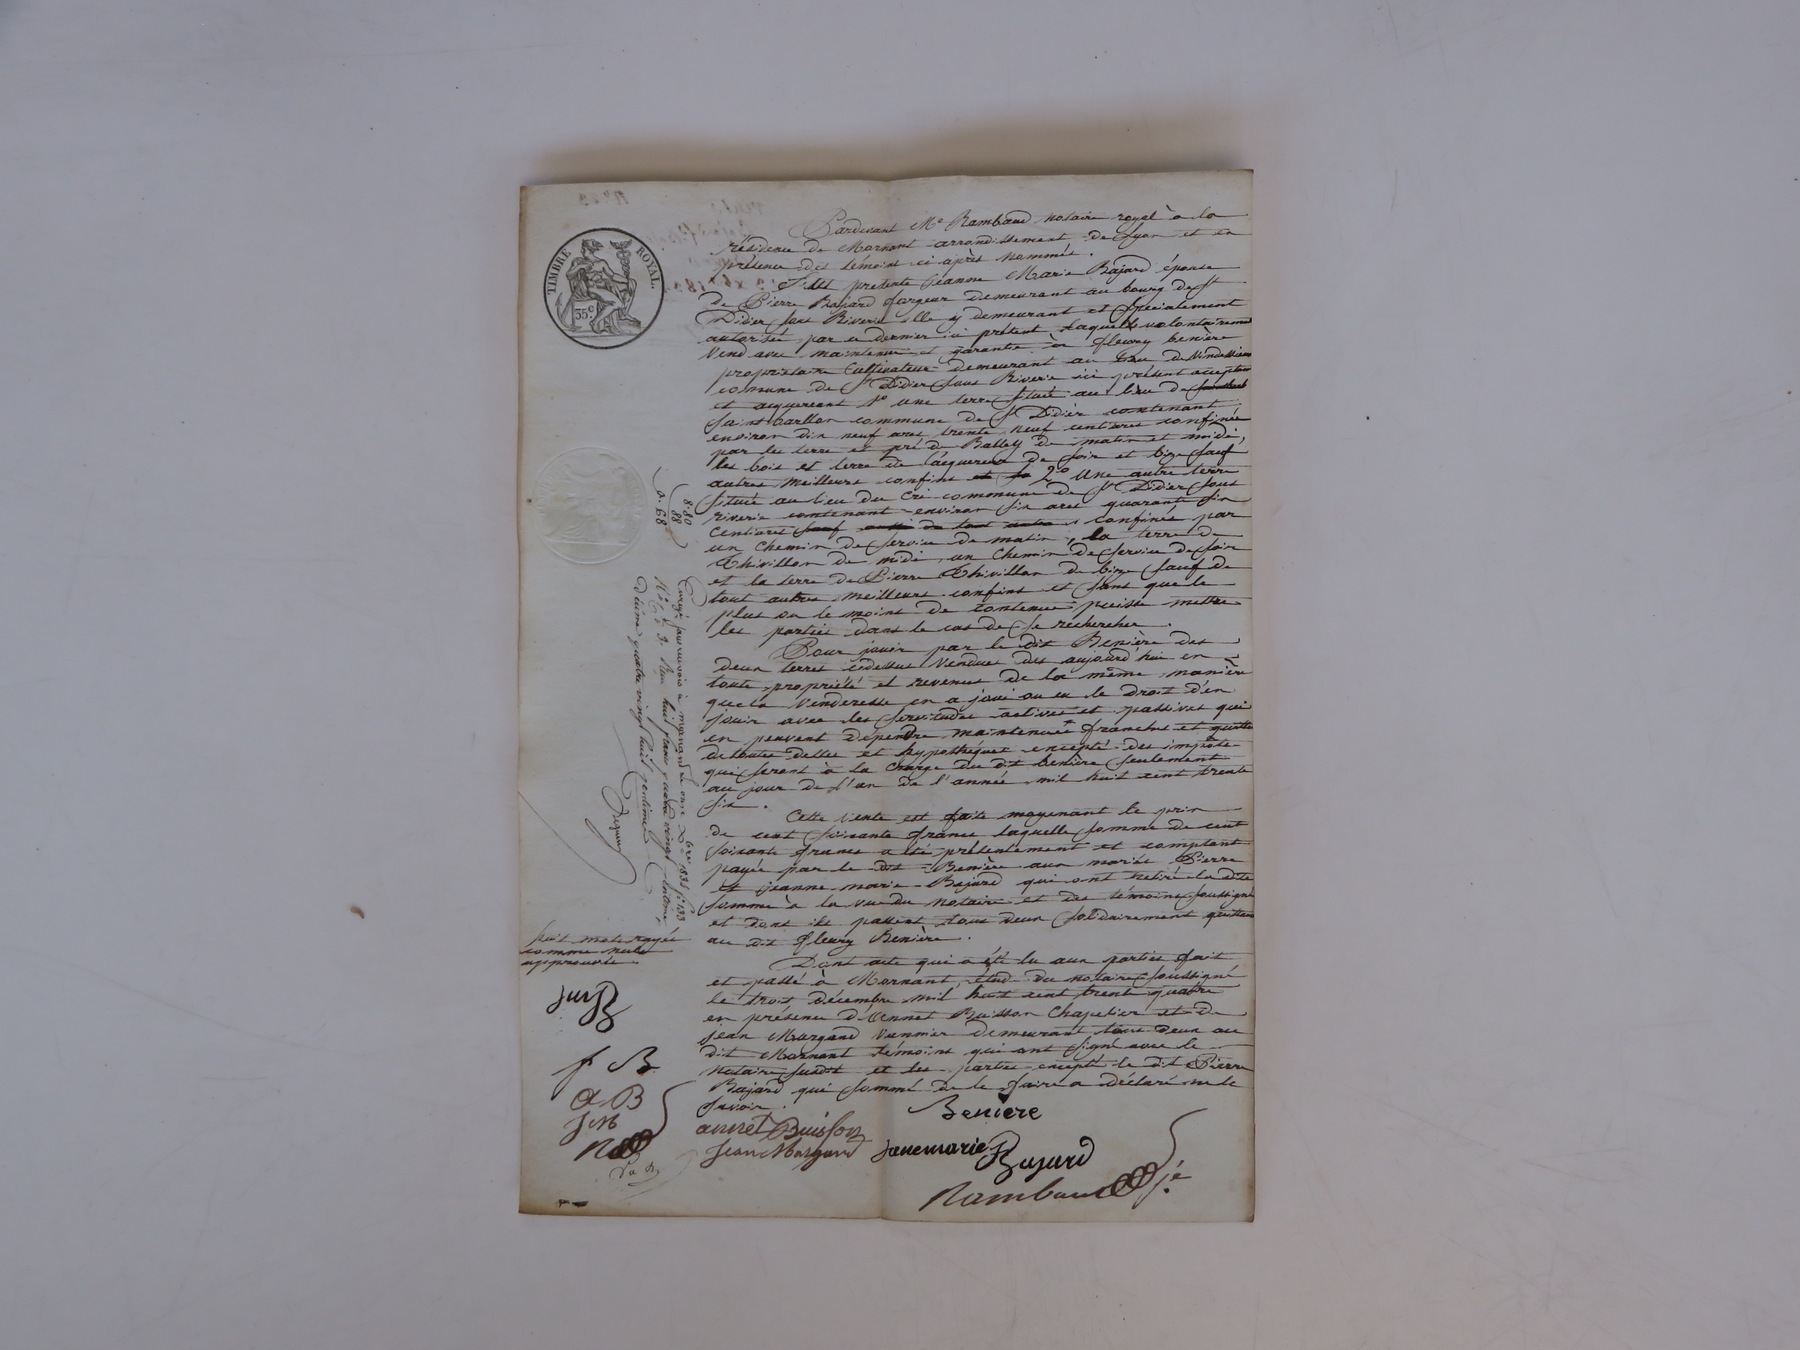 TIMBRE ROYAL
35c
Pardevant Me Rambaud notaire royal à la
résidence de Mornant arrondissement de Lyon et en
présence des témoins ci après nommés.
S'est presente Jeanne Marie Bajard épouse
de Pierre Bajard forgeur demeurant au bourg de St
Didier sous Riverie elle y demeurant et specialement
autorisée par ce dernier ici présent laquelle volontairement
vend avec maintenue et garantie à fleury benière
propriétaire cultivateur demeurant au lieu de
comune de St Didier sous Riverie ici présent acceptant
et acquereant 1o une terre située au lieu de
saint barllon commune de St Didier contenant
environ dix neuf ares trente neuf centiares confinée
par les terre et pré de Balley de matin et midi,
les bois et terre de l'acquereur de soir et bize sauf
autres meilleurs confins 2o Une autre terre
située au lieu du Cré commune de St Didier sous
riverie contenant environ six ares quarante six
centiares sauf aussi de tout autre, confinée par
un chemin de service de matin, la terre de
Thivillon de midi, un chemin de service de soir
et la terre de Pierre Thivillon de bize sauf de
tout autres meilleurs confins et sans que le
plus ou le moins de contenue puisse mettre
les parties dans le cas de se rechercher.
Pour jouir par le dit Benière des
deux terres cidessus vendues dès aujourd'hui en
toute propriété et revenus de la même manière
que la venderesse en a joui ou eu le droit d'en
jouir avec les servitudes actives et passives qui
en peuvent dépendre maintenues franches et quittes
de toutes dettes et hypothéques excepté des impôts
qui seront à la charge du dit benière seulement
au jour de l'an de l'année mil huit cent trente
six.
Cette vente est faite moyenant le prix
de cent soixante francs laquelle somme de cent
soixante francs a été présentement et comptant
payée par le dit Benière aux mariés Pierre
et jeanne marie Bajard qui ont retiré la dite
somme à la vue du notaire et des témoins soussignés
et dont ils passent tous deux solidairement quittance
au dit fleury Benière.
Dont acte qui a été lu aux parties fait
et passé à Mornant, étude du notaire soussigné
le trois décembre mil huit cent trente quatre
en présence d'Annet Buisson Chapelier et de
Jean Margand Vannier demeurant tous deux au
dit Mornant témoins qui ont signé avec le
notaire susdit et les parties excepté le dit Pierre
Bajard qui sommé de le faire a déclaré ne le
savoir.
Beniere
annet Buisson
Jean Margand
janemarie Bajard
Rambaud
8.80
88
9.68
Enregé sans renvois à mornand le onze Xbre 1834 fo 133
Ro Co 2. Reçu huit francs quatre vingt centimes,
décime quatre vingt huit centimes
huit mots rayés
comme nuls
approuvée
jmB
f B
A B
J M
R